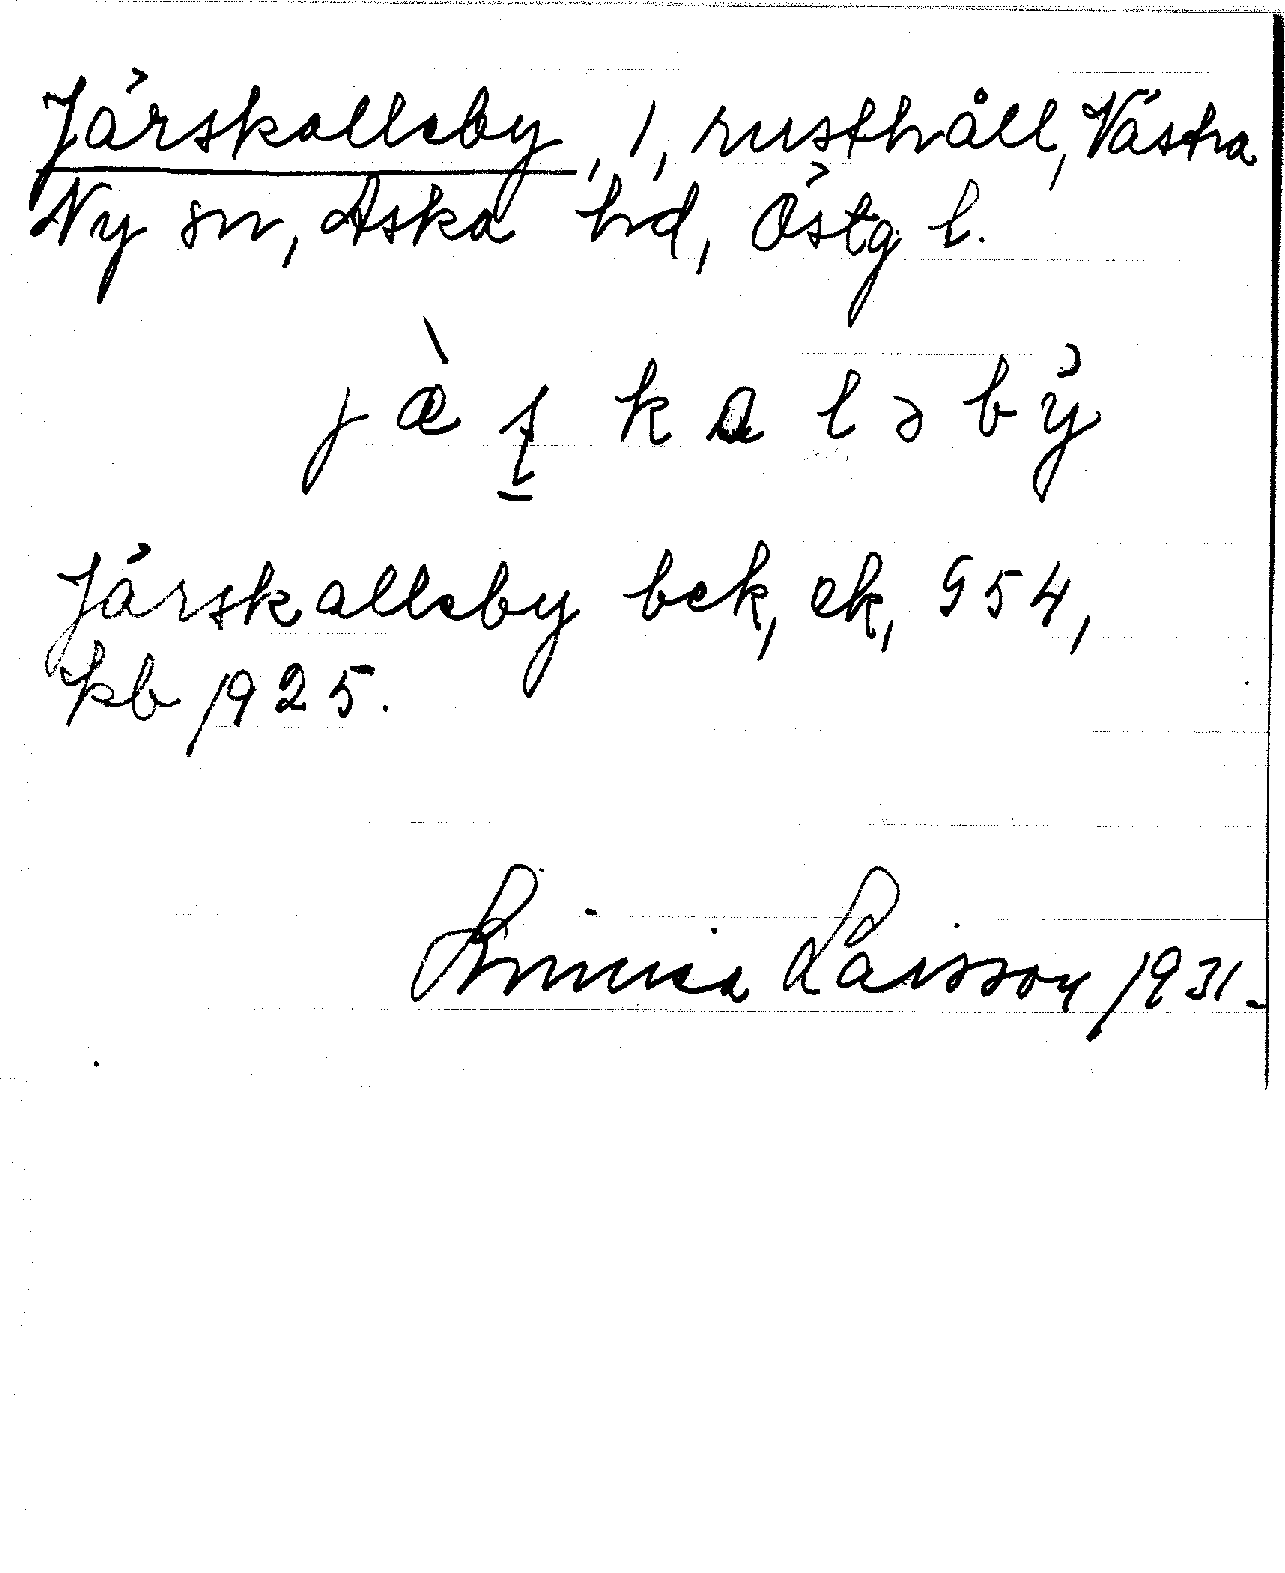 Järskalleby, 1, rusthåll, Västra
Ny sn, Aska hd, Östg l.
jæ̀ʂkaləbỳ
Järskalleby bek, ek, 954,
kb 1925.
Linnea Larsson 1931.